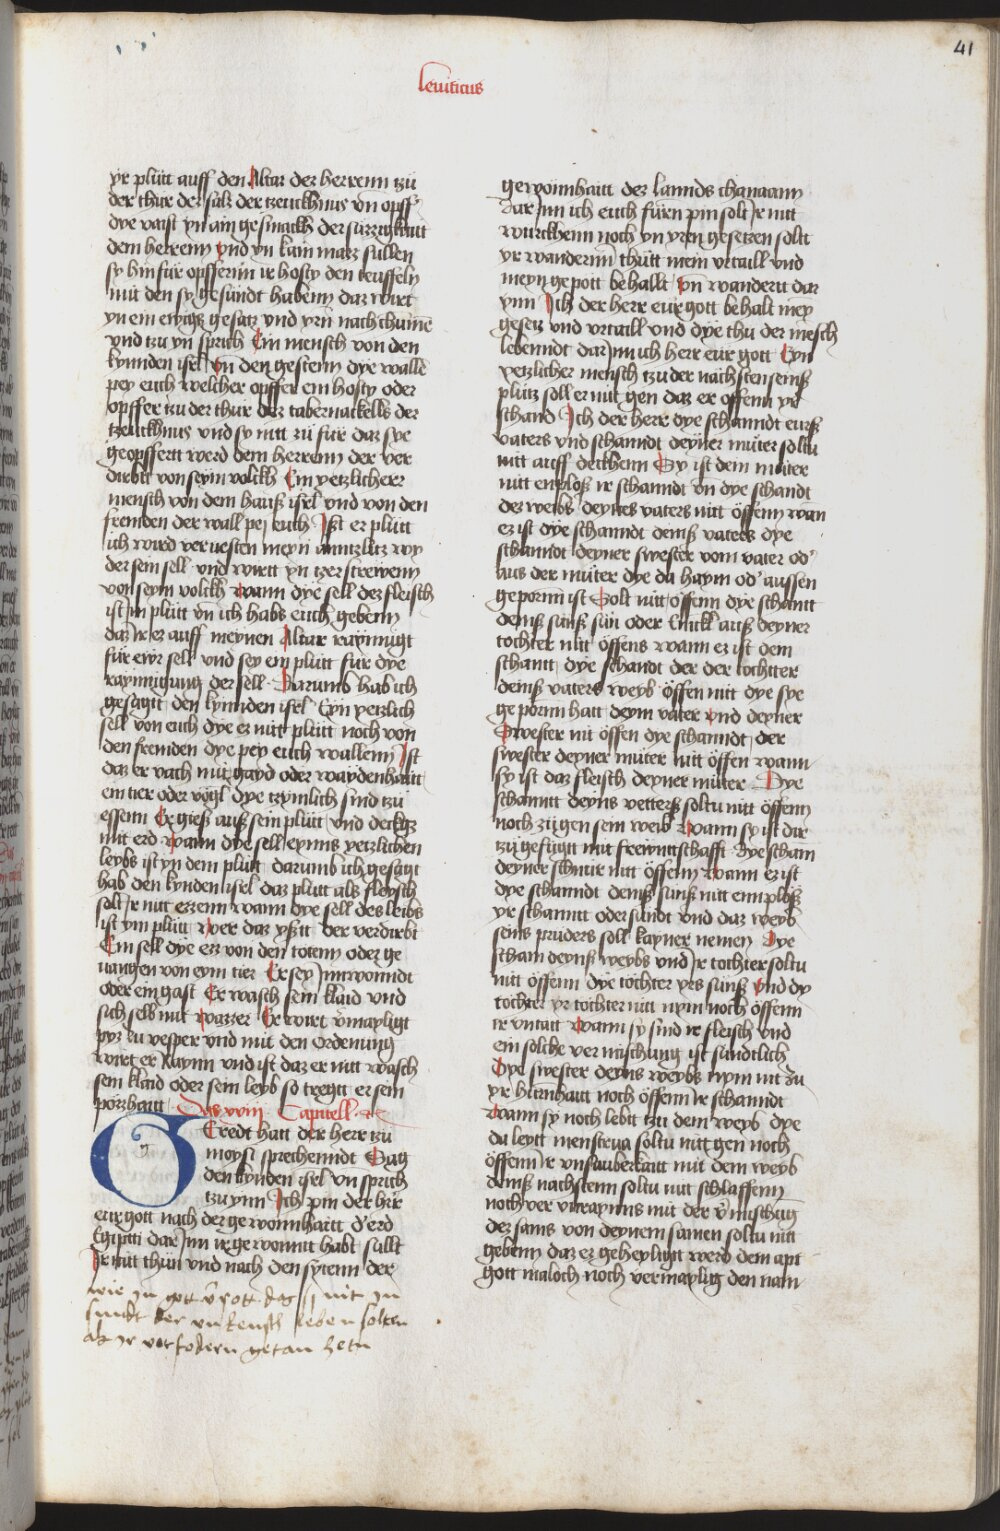 41
leuiticus
yr plutt auff den Altar dez herrenn tzu
der thur der sulz der tzeuckhnus vn opff
dye vaist yn ain gesmackh der sürzzigkaitt
dem herrenn vnd yn kain matz sullen
sy hin für opfferin ir hosty den teuffeln
mit den sy gesündt habenn daz wirt
yn ein ewigs gesatz vnd yrn nachchumē
vnd tzu yn sprich Ein mensch von den
kynnden isrl vn den gestenn dye wallē
pey euch welcher opffer ein hosty oder
opffer tzu der thur dez tabernackells der
tzeuckhnus vnd sy nitt zü für daz sye
geopffertt werd dem herrenn der ver
dirbtt von seym volckh Ein yetzlicherr
mensch von dem hauß isrl vnd von den
fremden der wall pej euch Ist er plütt
ich wird veruesten meyn anntzlütz wy
der sein sell vnd wirtt yn tzerstrewenn
von seym volckh wann dye sell dez fleisch
ist jm plütt vn ich habs euch gebenn
daz ir ez auff meynen Altar raynnigt
für ewr sell vnd sey ein plütt für dye
raynnigung der sell Darumb hab ich
gesagtt den kynnden isrl Eyn yetzlich
sell von euch dye ez nitt plütt noch von
den fremden dye pey euch wallenn Ist
daz er vach mit gayd oder waydenhaitt
ein tier oder vögl dye tzymlich sind tzü
essenn Er gieß auß sein plütt vnd deckhs
mit erd wann dye sell eynns yetzlichen
leybs ist yn dem plütt darumb ich gesagt
hab den kynden isrl daz plütt alz fleysch
solt jr nit ezzenn wann dye sell des leibs
ist ym plütt wer daz ysstt der verdirbt
Ein sell dye ezz von den totenn oder ge
uangen von eym tier Er sey jnnwonndt
oder ein gast Er wasch sein klaid vnd
sich selb mit wazzer Er wirt vmayligt
pyz tzu vesper vnd mit den Ordenung
wirt er Raynn vnd ist daz er nitt wasch
sein klaid oder sein leyb so tregtt er sein
poszhaitt Das xviij Capitell
Gredt hatt der herr tzu
moysi sprechenndt Sag
den kynden isrl vn sprich
tzu ynn Ich pin der herr
eur gott nach der gewonnhaitt d'erd
Egipti dar jnn ir gewonnt habt süllt
Ir nitt thün vnd nach den sytenn der
wie in gott v'pott das sy nit in
sundt der vnkensch leben solten
als ir vorfodern getan hetn
gewonnhaitt dez lannds chanaann
dar jnn ich euch fürn pin solt jr nitt
wurckhenn noch yn yren gesetzen soltt
yr wanderinn thütt mein vrtaill vnd
meyn gepott behallt vn wandertt dar
ynn Ich der herr eur gott behalt mey
gesetz vnd vrtaill vnd dye thu der mesch
lebenndt dar jnn ich herr eür gott Eyn
yetzlicher mensch tzu der nächsten seinß
plütz soll er nitt gen daz er offenn yr
schand Ich der herr dye schanndt eurß
vaters vnd schanndt deyner müter soltu
nitt auff deckhenn Sy ist dein müter
nitt enploß ir schanndt vn dye schandt
dez weibs deynes vaters nitt öffenn wan
ez ist dye schanndt deinß vaters dye
schanndt deyner swester vom vater od'
aus der müter dye da haym od' aussen
geporrn ist Solt nitt öffenn dye schantt
deinß sunß sün oder Enickl auß deyner
tochter nitt öffens wann ez ist dein
schantt dye schandt der der tochtter
deinß vaters weyb öffen nit dye sye
geporrn hatt deym vater vnd deyner
Swester nit öffen dye schanndt der
swester deyner müter nitt öffen wann
sy ist daz fleisch deyner müter Dye
schanntt deyns vetterß soltu nitt öffenn
noch zü gen sein weib wann sy ist dir
tzü gefügtt mit frewnttschafft dye scham
deyner schnür nitt öffenn wann ez ist
dye schanndt deinß sunß nitt emploß
yr schanntt oder sündt vnd daz weyb
seins prüders soll kayner nemen Dye
scham deynß weybs vnd jr tochter soltu
nitt öffenn dye töchter yes sünß vnd dy
tochter yr tochter nitt nym noch öffenn
ir vntatt wann sy sind ir fleisch vnd
ein solche vermischung ist sündtlich
Dye swester deyns weybs nym nit zu
yr hürnhaitt noch öffenn ir schanndt
wann sy noch lebtt tzu dem weyb dye
da leytt menstrua soltu nitt gen noch
öffenn ir vnsauberkaitt mit dem weyb
deinß nachstenn soltu nitt schlaffenn
noch ver vnraynns mit der v'mischüg
dez sams von deynem samen soltu nitt
gebenn daz ez geheyligtt werd dem apt
gott maloch noch vermaylig den nam